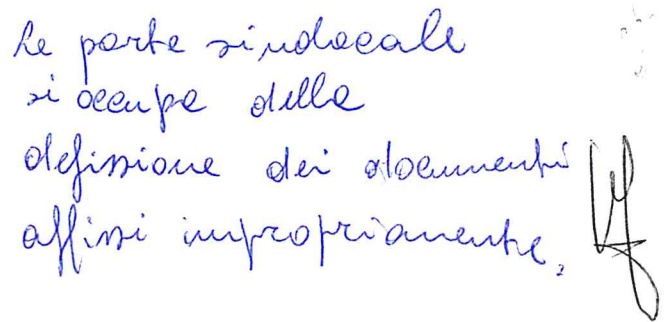 La parte sindacale
si occupa della
defissione dei documenti
affissi impropriamente.